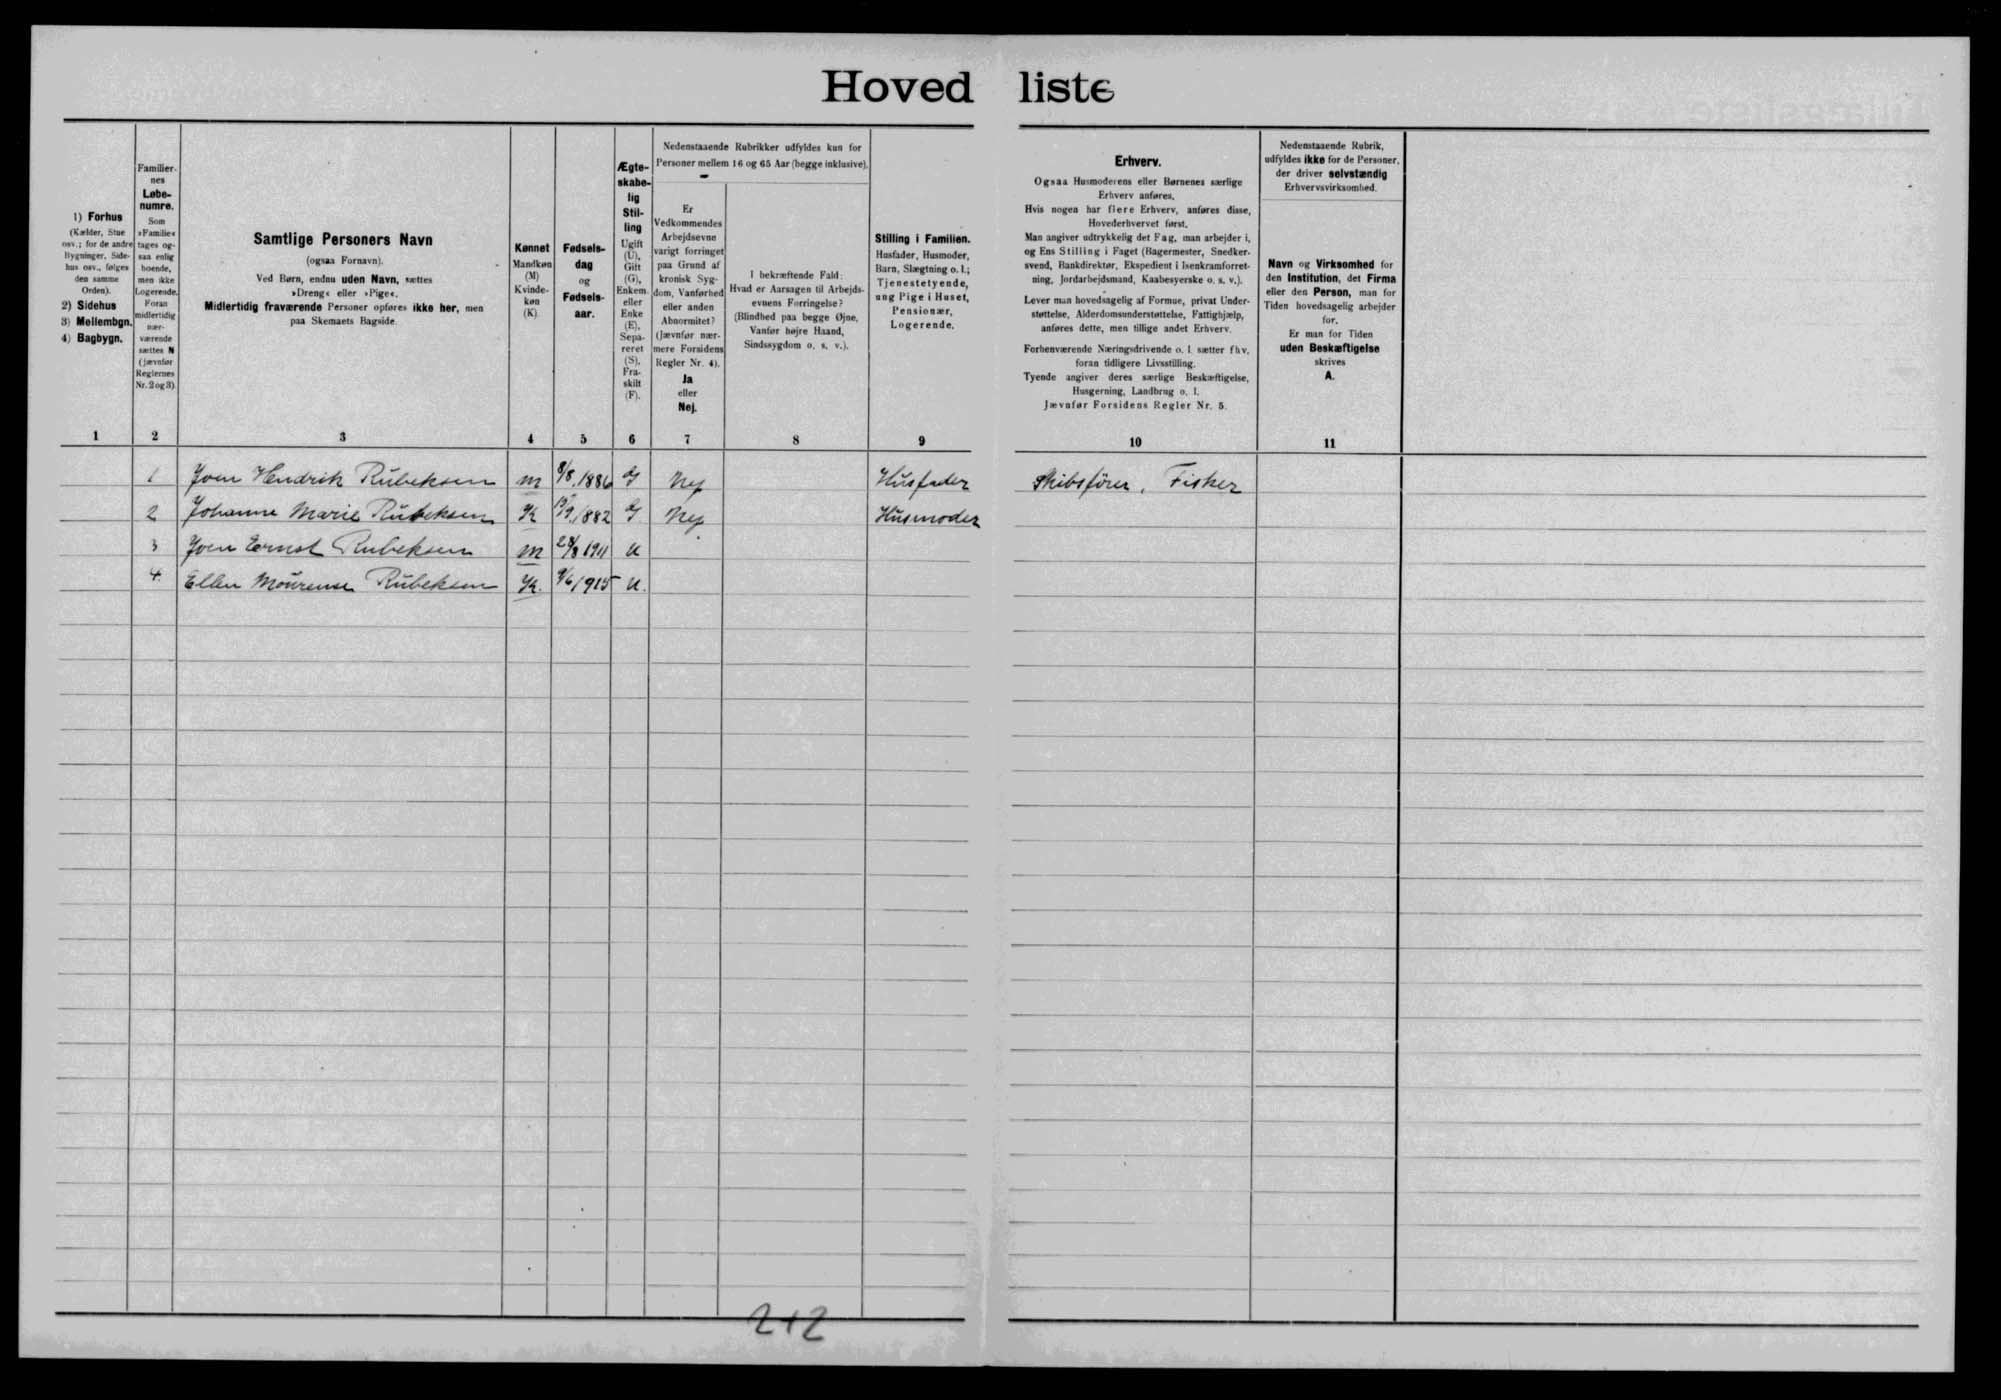 Hovedliste
1) Forhus
(Kælder, Stue
osv.; for de andre
Bygninger, Side-
hus osv., følges
den samme
Orden).
2) Sidehus
3) Mellembgn.
4) Bagbygn.
Familier-
nes
Løbe-
numre.
Som
»Familie«
tages og-
saa enlig
boende,
men ikke
Logerende.
Foran
midlertidig
nær-
værende
sættes N
(jævnfør
Reglernes
Nr. 2 og 3).
Samtlige Personers Navn
(ogsaa Fornavn).
Ved Børn, endnu uden Navn, sættes
»Dreng« eller »Pige«.
Midlertidig fraværende Personer opføres ikke her, men
paa Skemaets Bagside.
Kønnet
Mandkøn
(M)
Kvinde-
køn
(K).
Fødsels-
dag
og
Fødsels-
aar.
Ægte-
skabe-
lig
Stil-
ling
Ugift
(U),
Gift
(G),
Enkem.
eller
Enke
(E),
Sepa-
reret
(S),
Fra-
skilt
(F).
Nedenstaaende Rubrikker udfyldes kun for
Personer mellem 16 og 65 Aar (begge inklusive).
Er
Vedkommendes
Arbejdsevne
varigt forringet
paa Grund af
kronisk Syg-
dom, Vanførhed
eller anden
Abnormitet?
(Jævnfør nær-
mere Forsidens
Regler Nr. 4).
Ja
eller
Nej.
I bekræftende Fald:
Hvad er Aarsagen til Arbejds-
evnens Forringelse?
(Blindhed paa begge Øjne,
Vanfør højre Haand,
Sindssygdom o. s. v.).
Stilling i Familien.
Husfader, Husmoder,
Barn, Slægtning o. l.;
Tjenestetyende,
ung Pige i Huset,
Pensionær,
Logerende.
Erhverv.
Ogsaa Husmoderens eller Børnenes særlige
Erhverv anføres.
Hvis nogen har flere Erhverv, anføres disse,
Hovederhvervet først.
Man angiver udtrykkelig det Fag, man arbejder i,
og Ens Stilling i Faget (Bagermester, Snedker-
svend, Bankdirektør, Ekspedient i Isenkramforret-
ning, Jordarbejdsmand, Kaabesyerske o. s. v.).
Lever man hovedsagelig af Formue, privat Under-
støttelse, Alderdomsunderstøttelse, Fattighjælp,
anføres dette, men tillige andet Erhverv.
Forhenværende Næringsdrivende o. l. sætter fhv.
foran tidligere Livsstilling.
Tyende angiver deres særlige Beskæftigelse,
Husgerning, Landbrug o. l.
Jævnfør Forsidens Regler Nr. 5.
Nedenstaaende Rubrik,
udfyldes ikke for de Personer,
der driver selvstændig
Erhvervsvirksomhed.
Navn og Virksomhed for
den Institution, det Firma
eller den Person, man for
Tiden hovedsagelig arbejder
for.
Er man for Tiden
uden Beskæftigelse
skrives
A.
1 2 3 4 5 6 7 8 9 10 11
1 Joen Hendrik Rubeksen M 8/8 1886 G Nej Husfader Skibsfører, Fisker
2 Johanne Marie Rubeksen K 1882 G Nej Husmoder
3 Joen Ernst Rubeksen M 28/8 1911 U
4. Ellen Mourense Rubeksen K. 9/6 1915 U.
2+2